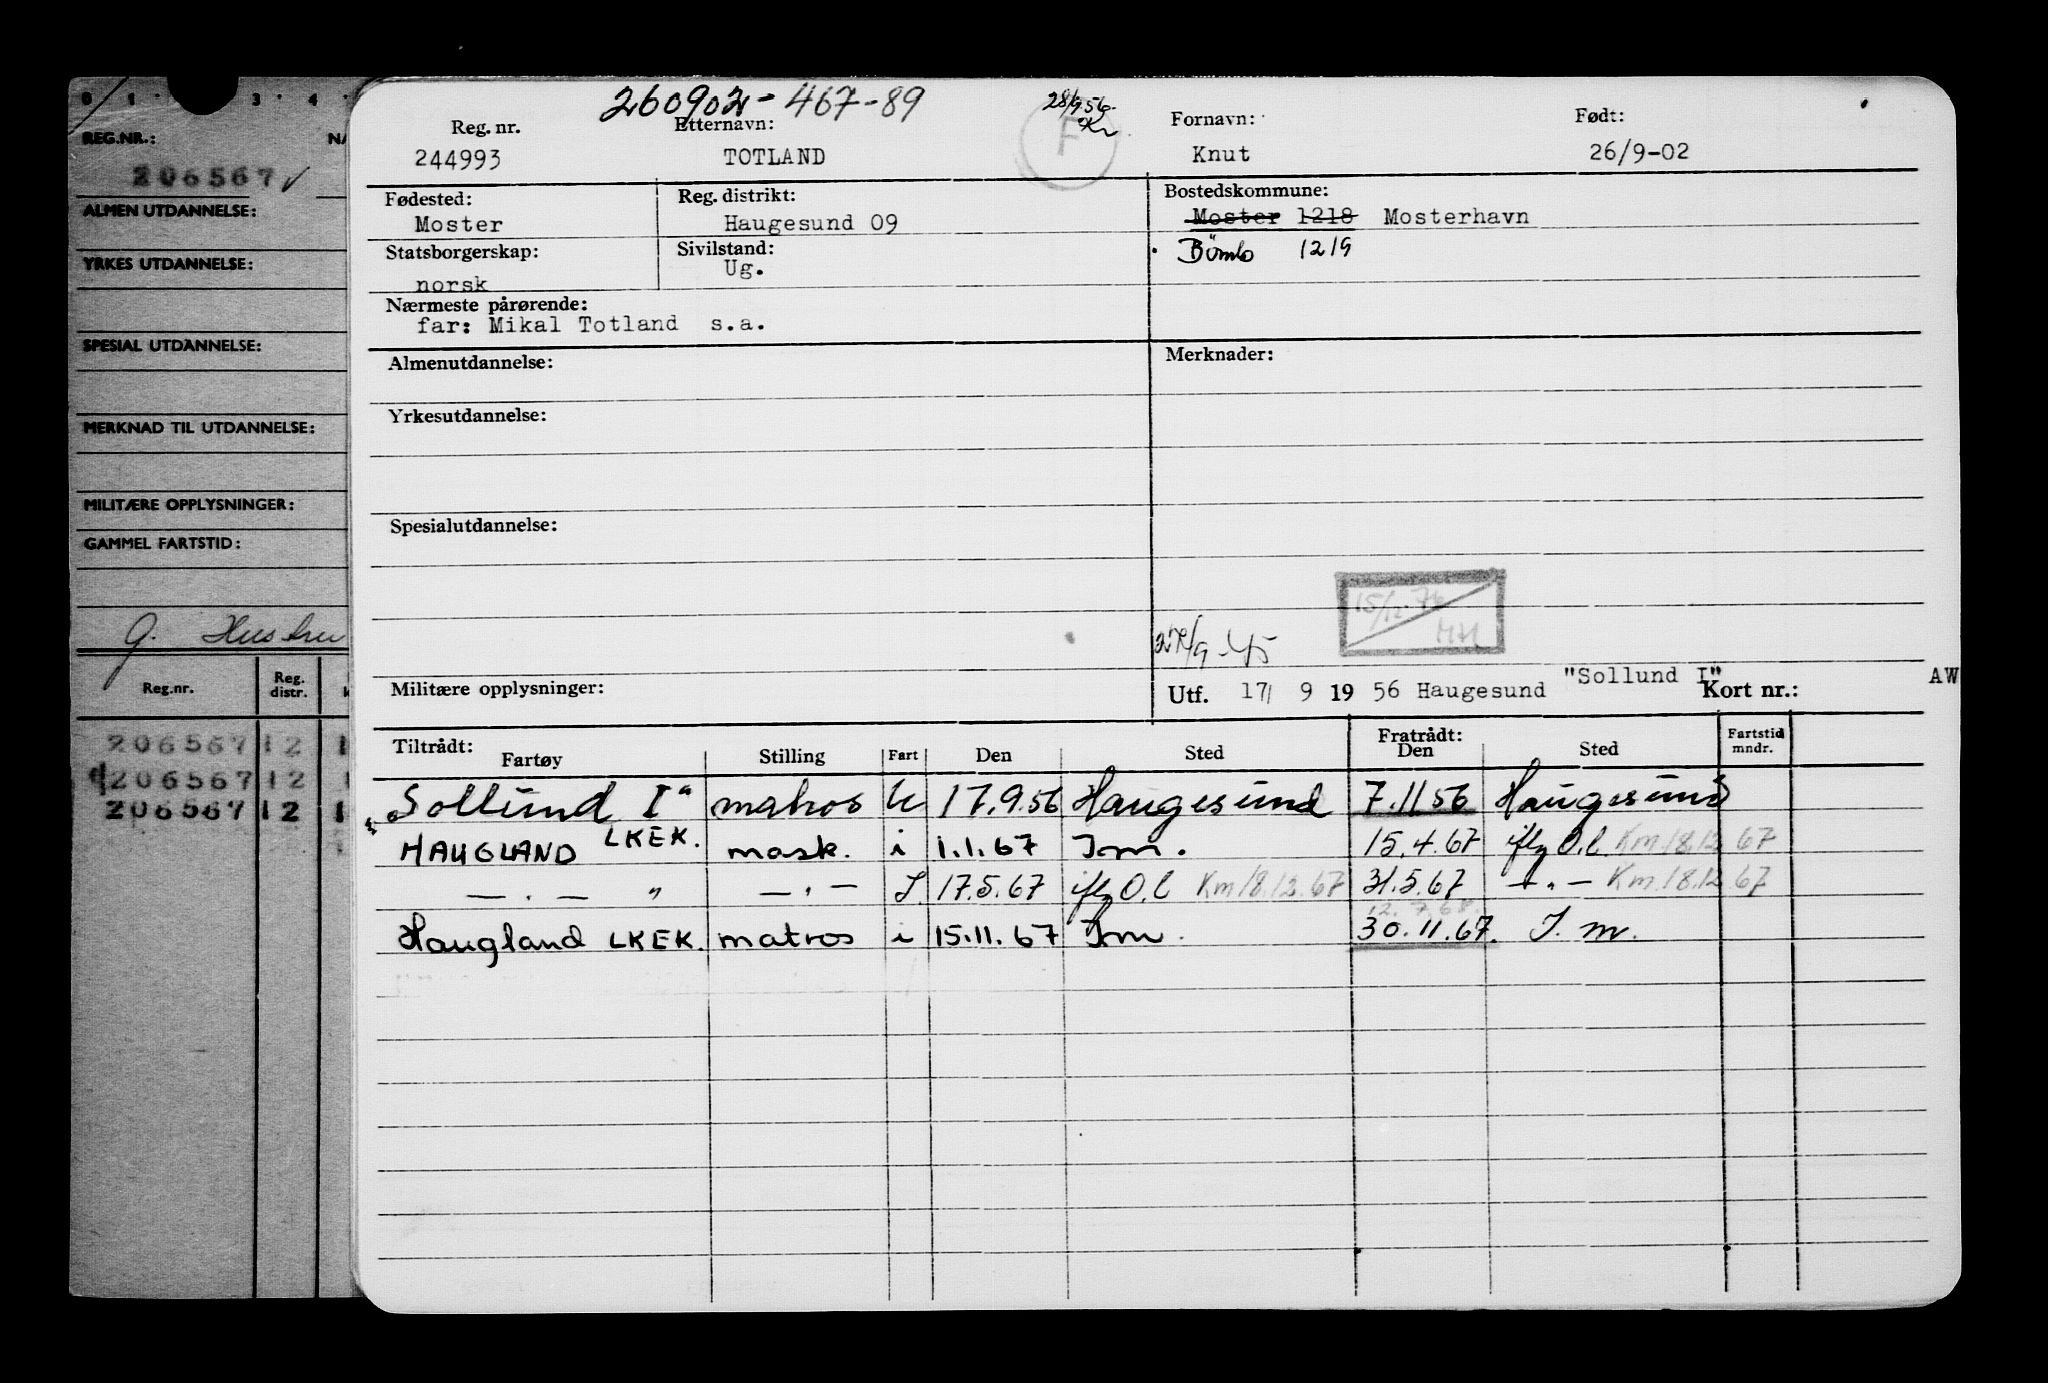 0 1 3 4
REG.NR.: NA
206567 ✓
ALMEN UTDANNELSE:
YRKES UTDANNELSE:
SPESIAL UTDANNELSE:
MERKNAD TIL UTDANNELSE:
MILITÆRE OPPLYSNINGER:
GAMMEL FARTSTID:
G.
Reg.nr. Reg. distr. k
206567 12 1
206567 12 1
206567 12 1
260902-467-89
28/9 56. Kr
F
Reg. nr. Etternavn: Fornavn: Født:
244993 TOTLAND Knut 26/9-02
Fødested: Reg. distrikt: Bostedskommune:
Moster Haugesund 09 Moster 1218 Mosterhavn
Statsborgerskap: Sivilstand: Bömlo 1219
norsk Ug.
Nærmeste pårørende:
far: Mikal Totland s.a.
Almenutdannelse: Merknader:
Yrkesutdannelse:
Spesialutdannelse:
15/12.76
MH
Militære opplysninger: Utf. 17/ 9 19 56 Haugesund "Sollund I" Kort nr.: AW
Tiltrådt: Fratrådt:
Fartøy Stilling Fart Den Sted Den Sted Fartstid mndr.
"Sollund I" matros U 17.9.56 Haugesund 7.11 56 Haugesund
HAUGLAND LKEK. mask. i 1.1.67 Im. 15.4.67 iflg O.l. Km.18.12 67
— . — " — " — I. 17.5.67 iflg O.l Km 18.12.67 31.5.67 — " — Km.18.12 67
12.7.68.
Haugland LKEK. matros i 15.11.67 Im. 30.11.67. I.m.